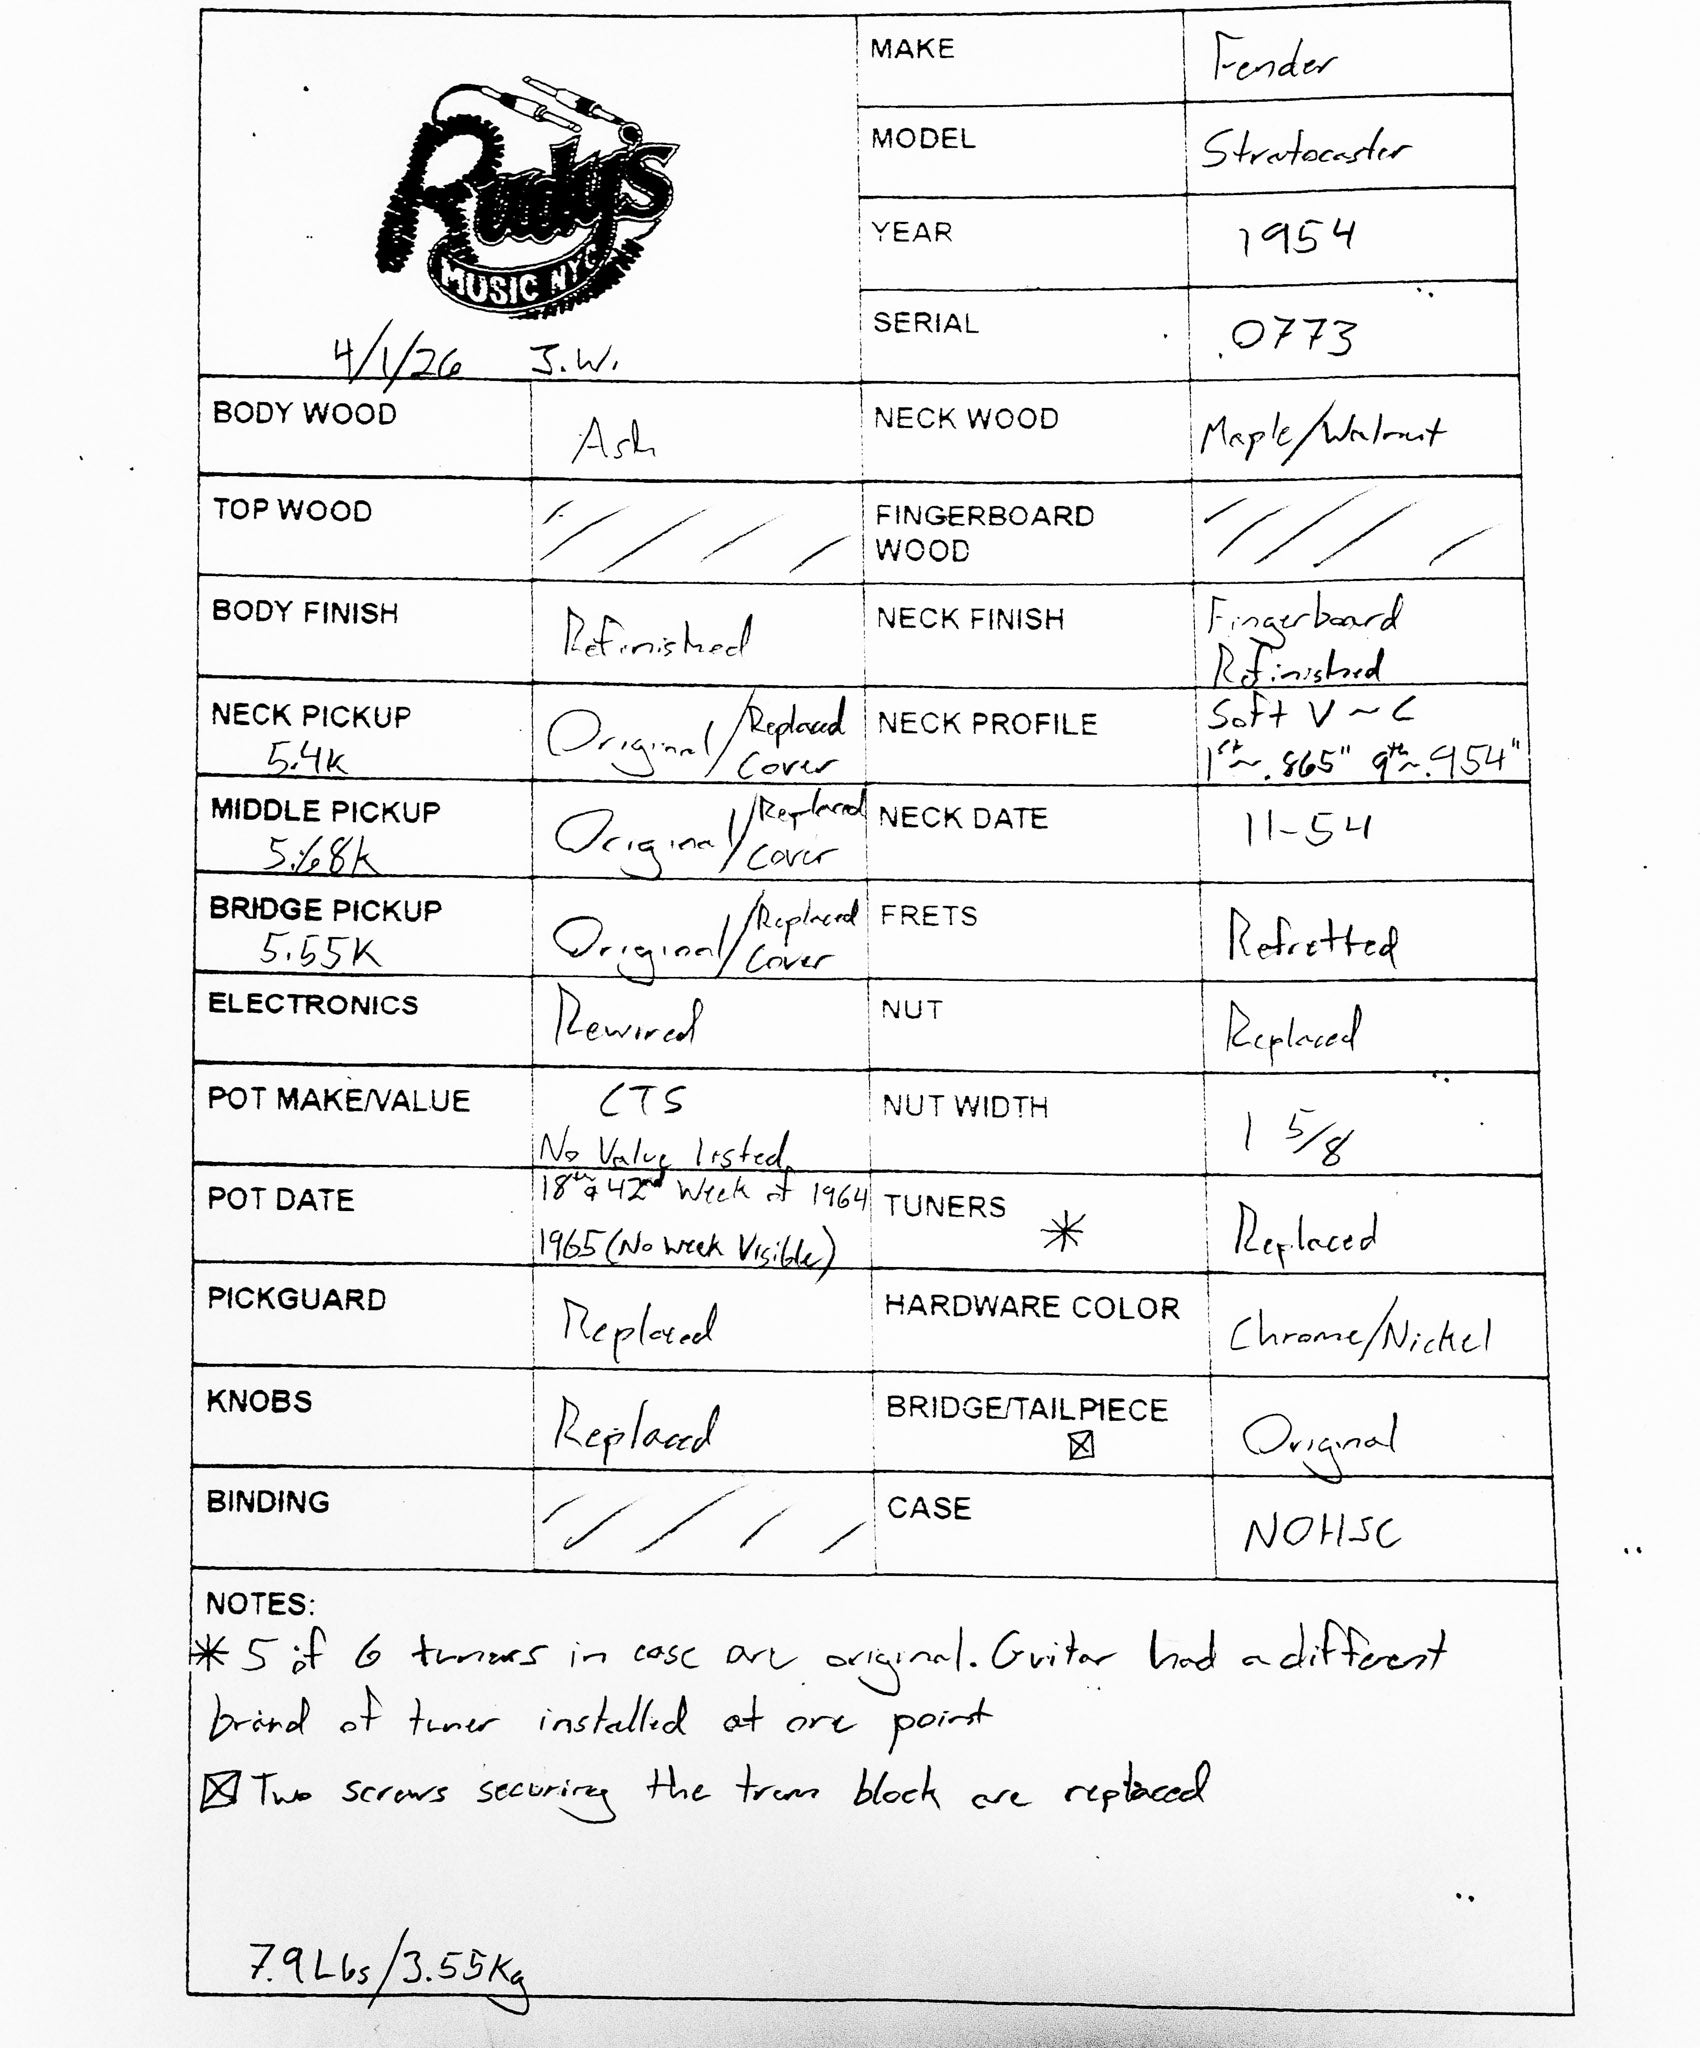 Rudy's
MUSIC NYC
4/1/26 J.W.
MAKE Fender
MODEL Stratocaster
YEAR 1954
SERIAL 0773
BODY WOOD Ash NECK WOOD Maple/Walnut
TOP WOOD FINGERBOARD
WOOD
BODY FINISH Refinished NECK FINISH Fingerboard
Refinished
NECK PICKUP Original/Replaced NECK PROFILE Soft V ~ C
5.4K Cover 1st ~ .865" 9th ~ .954"
MIDDLE PICKUP Original/Replaced NECK DATE 11-54
5.68K Cover
BRIDGE PICKUP Original/Replaced FRETS Refretted
5.55K Cover
ELECTRONICS Rewired NUT Replaced
POT MAKE/VALUE CTS NUT WIDTH 1 5/8
No Value listed
POT DATE 18th & 42nd Week of 1964 TUNERS * Replaced
1965 (No week Visible)
PICKGUARD Replaced HARDWARE COLOR Chrome/Nickel
KNOBS Replaced BRIDGE/TAILPIECE ☒ Original
BINDING CASE NOHSC
NOTES:
* 5 of 6 tuners in case are original. Guitar had a different
brand of tuner installed at one point
☒ Two screws securing the trem block are replaced
7.9 Lbs/3.55Kg